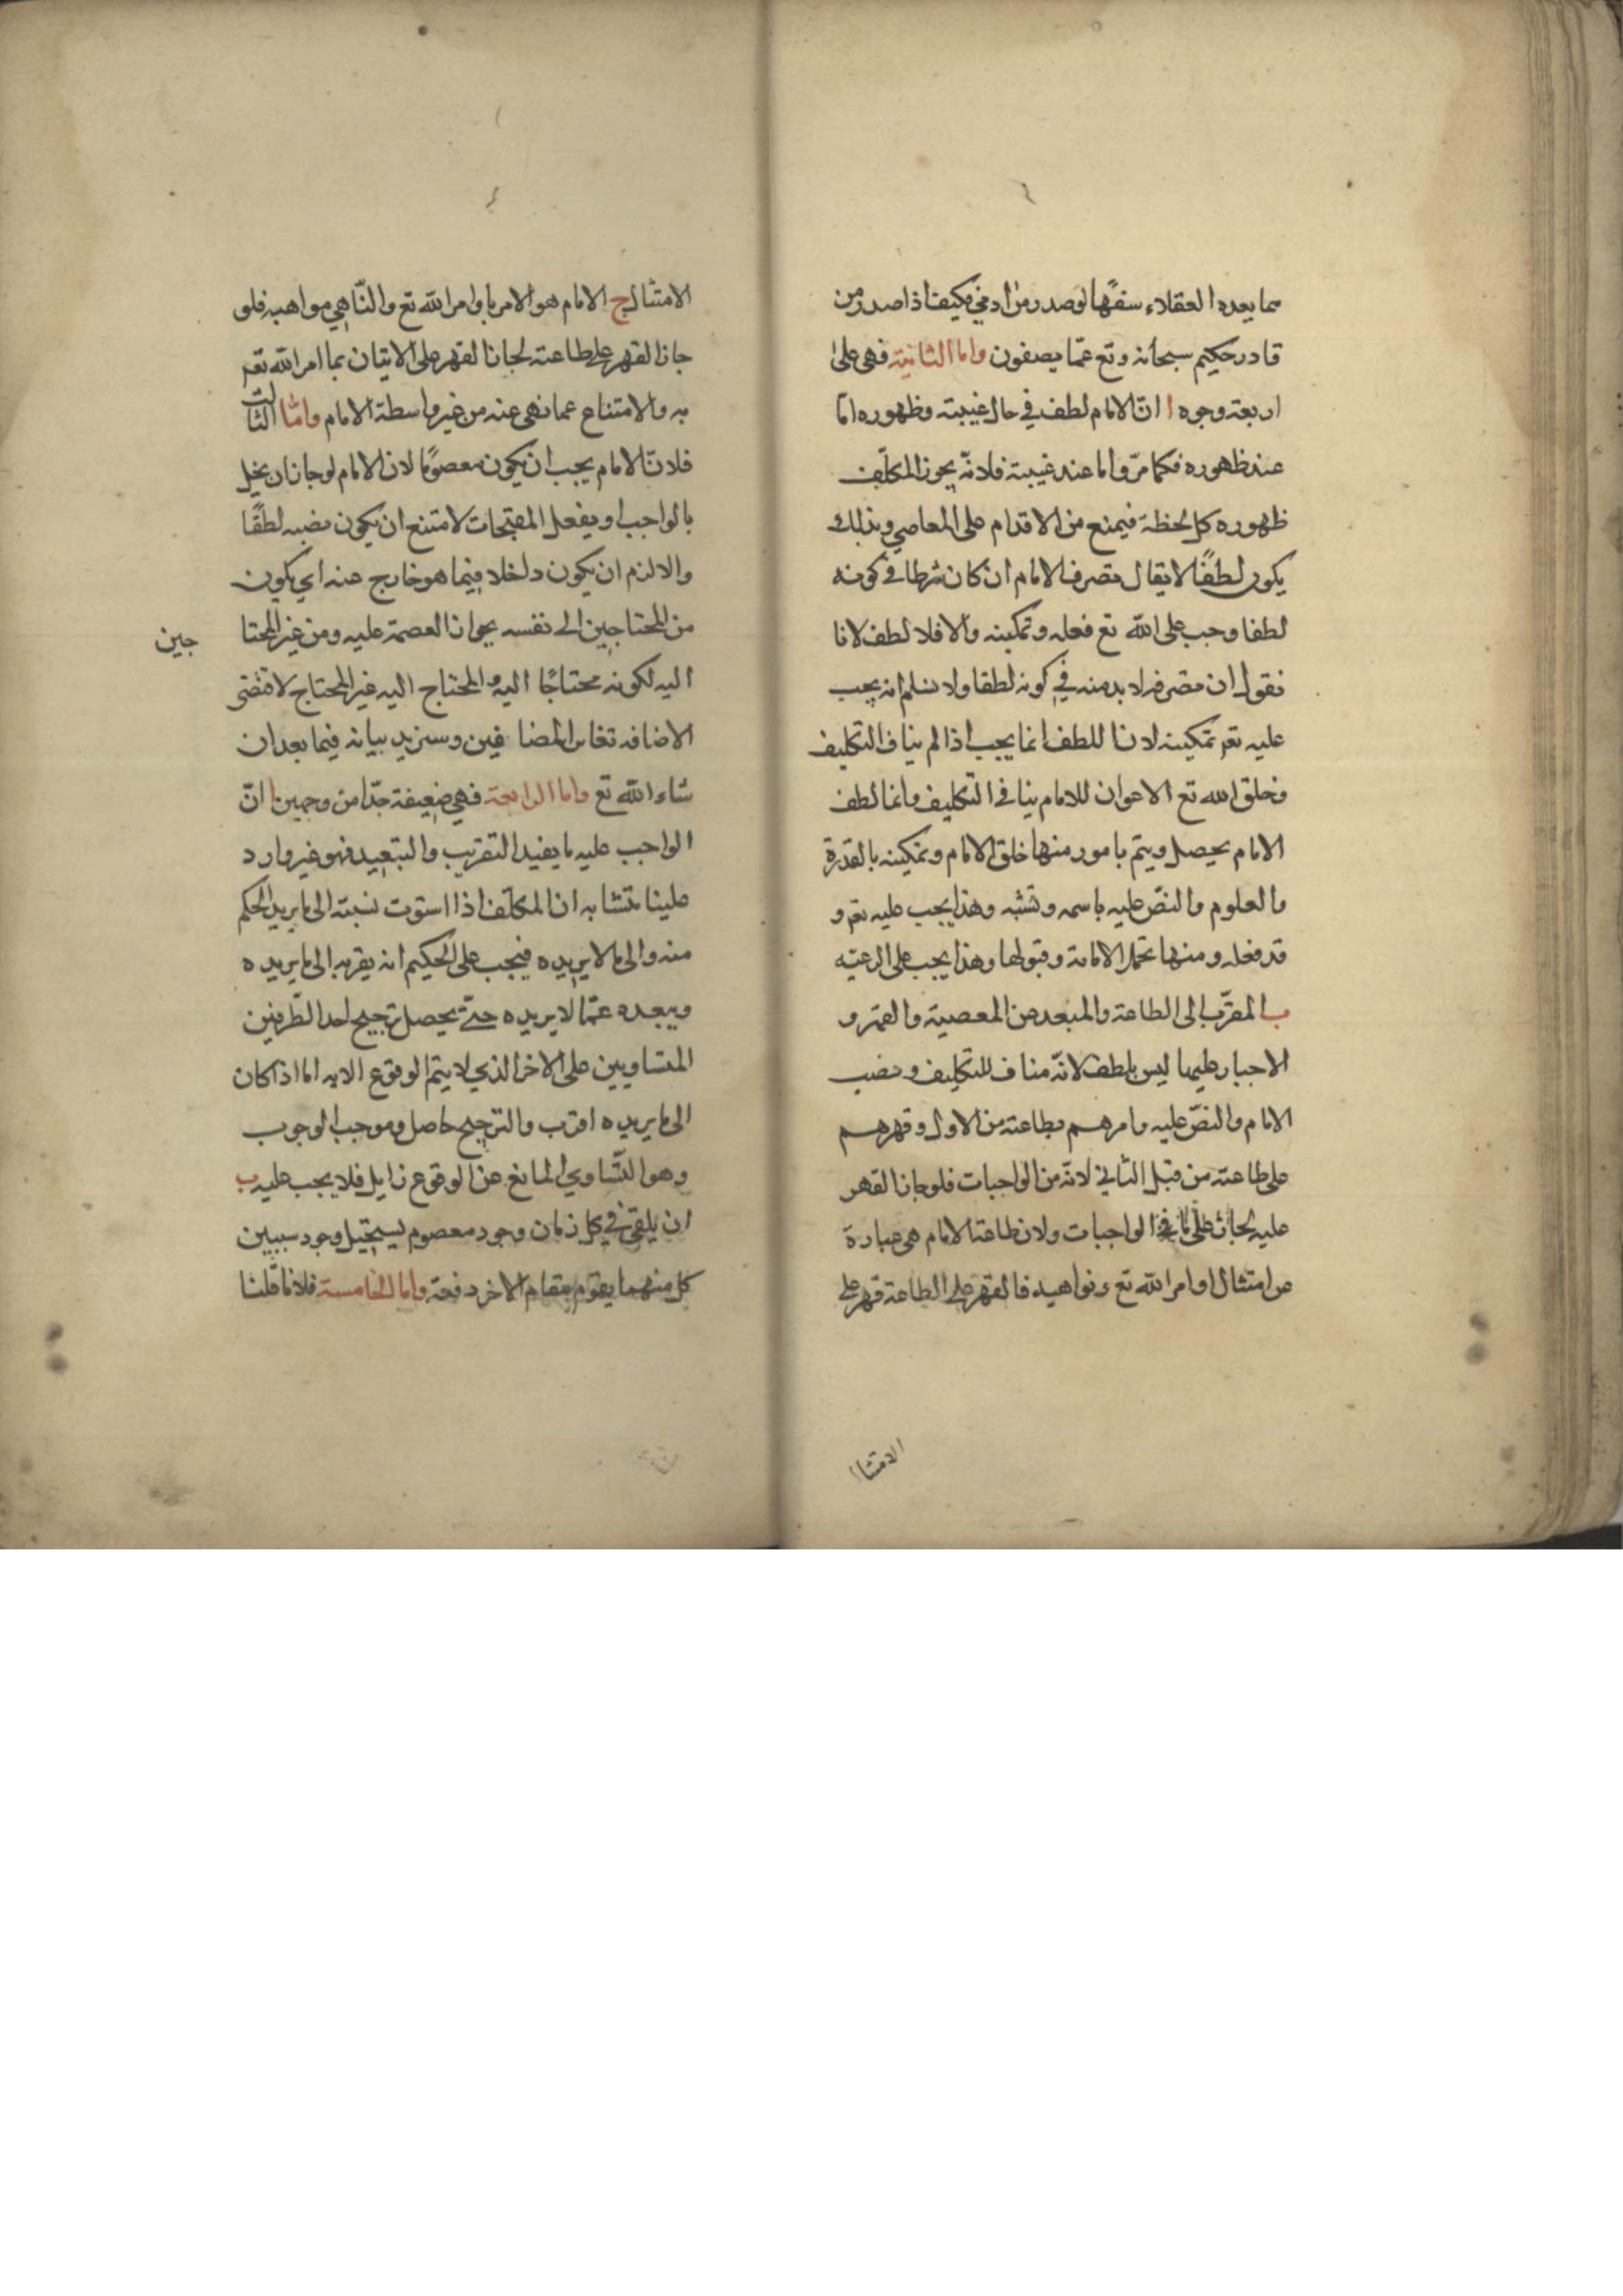 مما يعده العقلاء سفها لوصدر من ادمي فكيف اذا صدر من
قادر حكيم سبحانه وتع عمّا يصفون واما الثانية فهي على
اربعة وجوه ا انّ الامام لطف في حال غيبته وظهوره امّا
عند ظهوره فكما مرّ واما عند غيبته فلانّه يجوز المكلّف
ظهوره كل لحظة فيمتنع من الاقدام على المعاصي وبذلك
يكون لطفًا لا يقال تصرف الامام ان كان شرطا في كونه
لطفا وجب على الله تع فعله وتمكينه والا فلا لطف لانا
نقول ان تصرفه لا بد منه في كونه لطفا ولا نسلم انه يجب
عليه تع تمكينه لان اللطف انما يجب اذا لم يناف التكليف
فخلق الله تع الاعوان للامام ينافي التكليف وانما لطف
الامام يحصل ويتم بامور منها خلق الامام وتمكينه بالقدرة
والعلوم والنصّ عليه باسمه ونسبه وهذا يجب عليه تع و
قد فعله ومنها تحمل الامامة وقبولها وهذا يجب على الرعيّه
ب المقرّب الى الطاعة والمبعد عن المعصية والقهر و
الاجبار عليهما ليس بلطف لانّه مناف للتكليف ونصب
الامام والنصّ عليه وامرهم بطاعته من الاول وقهرهم
على طاعته من قبل الثاني لانّه من الواجبات فلو جاز القهر
عليه لجاز على باقي الواجبات ولان طاعة الامام هي عبارة
عن امتثال اوامر الله تع ونواهيه فالقهر على الطاعة قهر على
الامتثال
الامتثال ج الامام هو الامر باوامر الله تع والناهي مواهبه فلو
جاز القهر على طاعته لجاز القهر على الاتيان بما امر الله تع
به والامتناع عما نهى عنه من غير واسطة الامام وامّا الثالث
فلانّ الامام يجب ان يكون معصومًا لان الامام لو جاز ان يخل
بالواجب او يفعل المقبحات لامتنع ان يكون نصبه لطفًا
والا لزم ان يكون داخلا فيما هو خارج عنه اي يكون
من المحتاجين الى نفسه بجواز العصمة عليه ومن غير المحتا
جين
اليه لكونه محتاجًا اليه والمحتاج اليه غير المحتاج لاقتضى
الاضافة تغاير المضافين وسنزيد بيانه فيما بعد ان
شاء الله تع واما الرابعة فهي ضعيفة جدّا من وجهين ا انّ
الواجب عليه ما يفيد التقريب والتبعيد فهو غير وارد
علينا بتشابه ان المكلّف اذا استوت نسبته الى ما يريد الحكم
منه والى ما لا يريده فيجب على الحكيم انه يقربه الى ما يريده
ويبعده عمّا لا يريده حتّى يحصل ترجيح احد الطّرفين
المتساويين على الاخر الذي لا يتم الوقوع الا به اما اذا كان
الى ما يريده اقرب والترجيح حاصل وموجب الوجوب
وهو التّساوي المانع عن الوقوع زايل فلا يجب عليه ب
ان يلقى في كل زمان وجود معصوم يستحيل وجود سببين
كل منهما يقوم مقام الاخر دفعة واما الخامسة فلانا قلنا